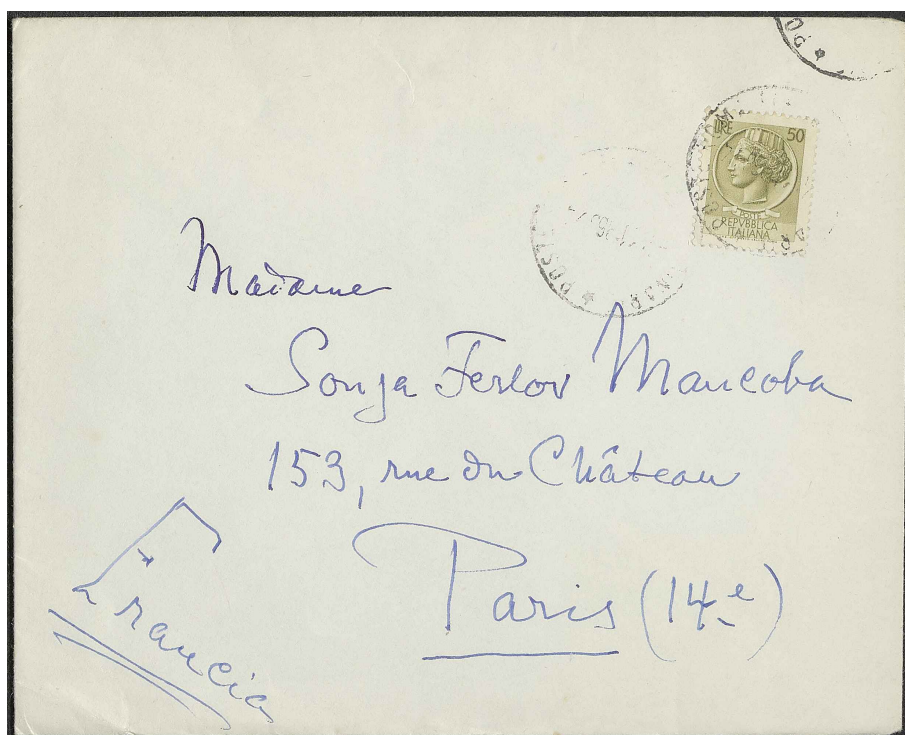 LIRE 50
POSTE
REPVBBLICA
ITALIANA
Madame
Sonja Ferlov Mancoba
153, rue du Château
Paris (14.e)
Francia